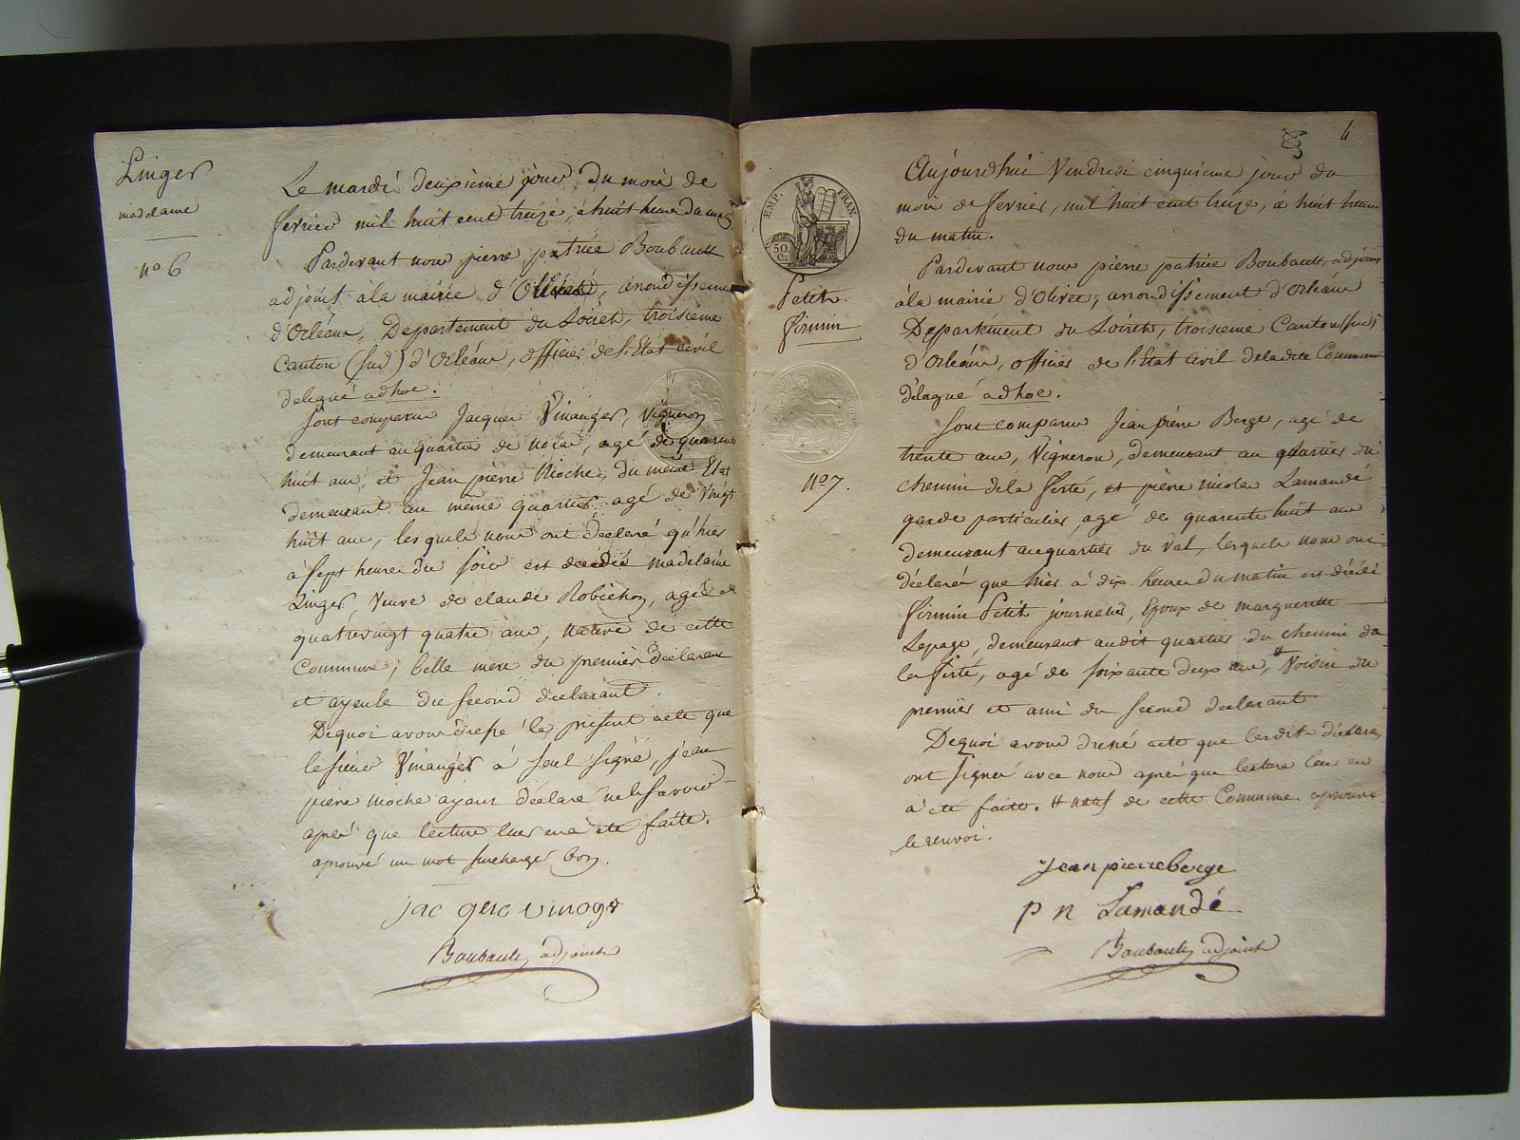 Linger
madelaine
n° 6
Le mardi deuxième jour du mois de
fevrier mil huit cent treize, à huit heure du
Pardevant nous pierre patrice Boubault
adjoint à la mairie d'Olivet, arrondisseme
d'Orléans, Departement du Loiret, troisième
Canton (sud) d'Orléans, officier de l'Etat Civil
delegué adhoc.
Sont comparu Jacques Vinauger, Vigneron
demeurant au quartier de , agé de quarante
huit ans, et Jean pierre Moche, du même Etat
demeurant au même quartier, agé de Vingt
huit ans, lesquels nous ont déclaré qu'hier
à Sept heures du Soir est décédée madelaine
Linger, Veuve de claude Robichon, agée de
quatrevingt quatre ans, native de cette
Commune, belle mere du premier déclarant
et ayeule du second déclarant.
Dequoi avons dressé le présent acte que
le sieur Vinauger à seul signé, jean
pierre moche ayant déclaré ne le Savoir
après que lecture leur en a été faite.
aprouvé un mot surchargé bon.
jac que vinoger
Boubault, adjoint
4
EMP. FRAN
50
C.
Petit
firmin
n° 7.
Aujourdhui Vendredi cinquième jour du
mois de fevrier, mil huit cent treize, à huit heure
du matin.
Pardevant nous pierre patrice Boubault, adjoint
à la mairie d'Olivet, arrondissement d'Orléans
Departement du Loiret, troisieme Canton (sud)
d'Orléans, officier de l'Etat Civil deladite Commune
délagué adhoc.
Sont comparu Jean pierre Berge, agé de
trente ans, Vigneron, demeurant au quartier du
chemin de la ferté, et pierre nicolas Lamandé
garde particulier, agé de quarente huit ans
demeurant au quartier du Val, lesquels nous ont
déclaré que hier à dix heures du matin est décédé
firmin Petit journalier, Epoux de marguerite
Lepage, demeurant audit quartier du chemin de
la ferté, agé de soixante deux ans, # Voisin du
premier et ami du second declarant
Dequoi avons dressé acte que lesdits déclarans
ont signé avec nous après que lecture leur en
a été faite. # natif de cette Commune. aprouvé
le renvoi.
jean pierre berge
p n Lamandé
Boubault, adjoint